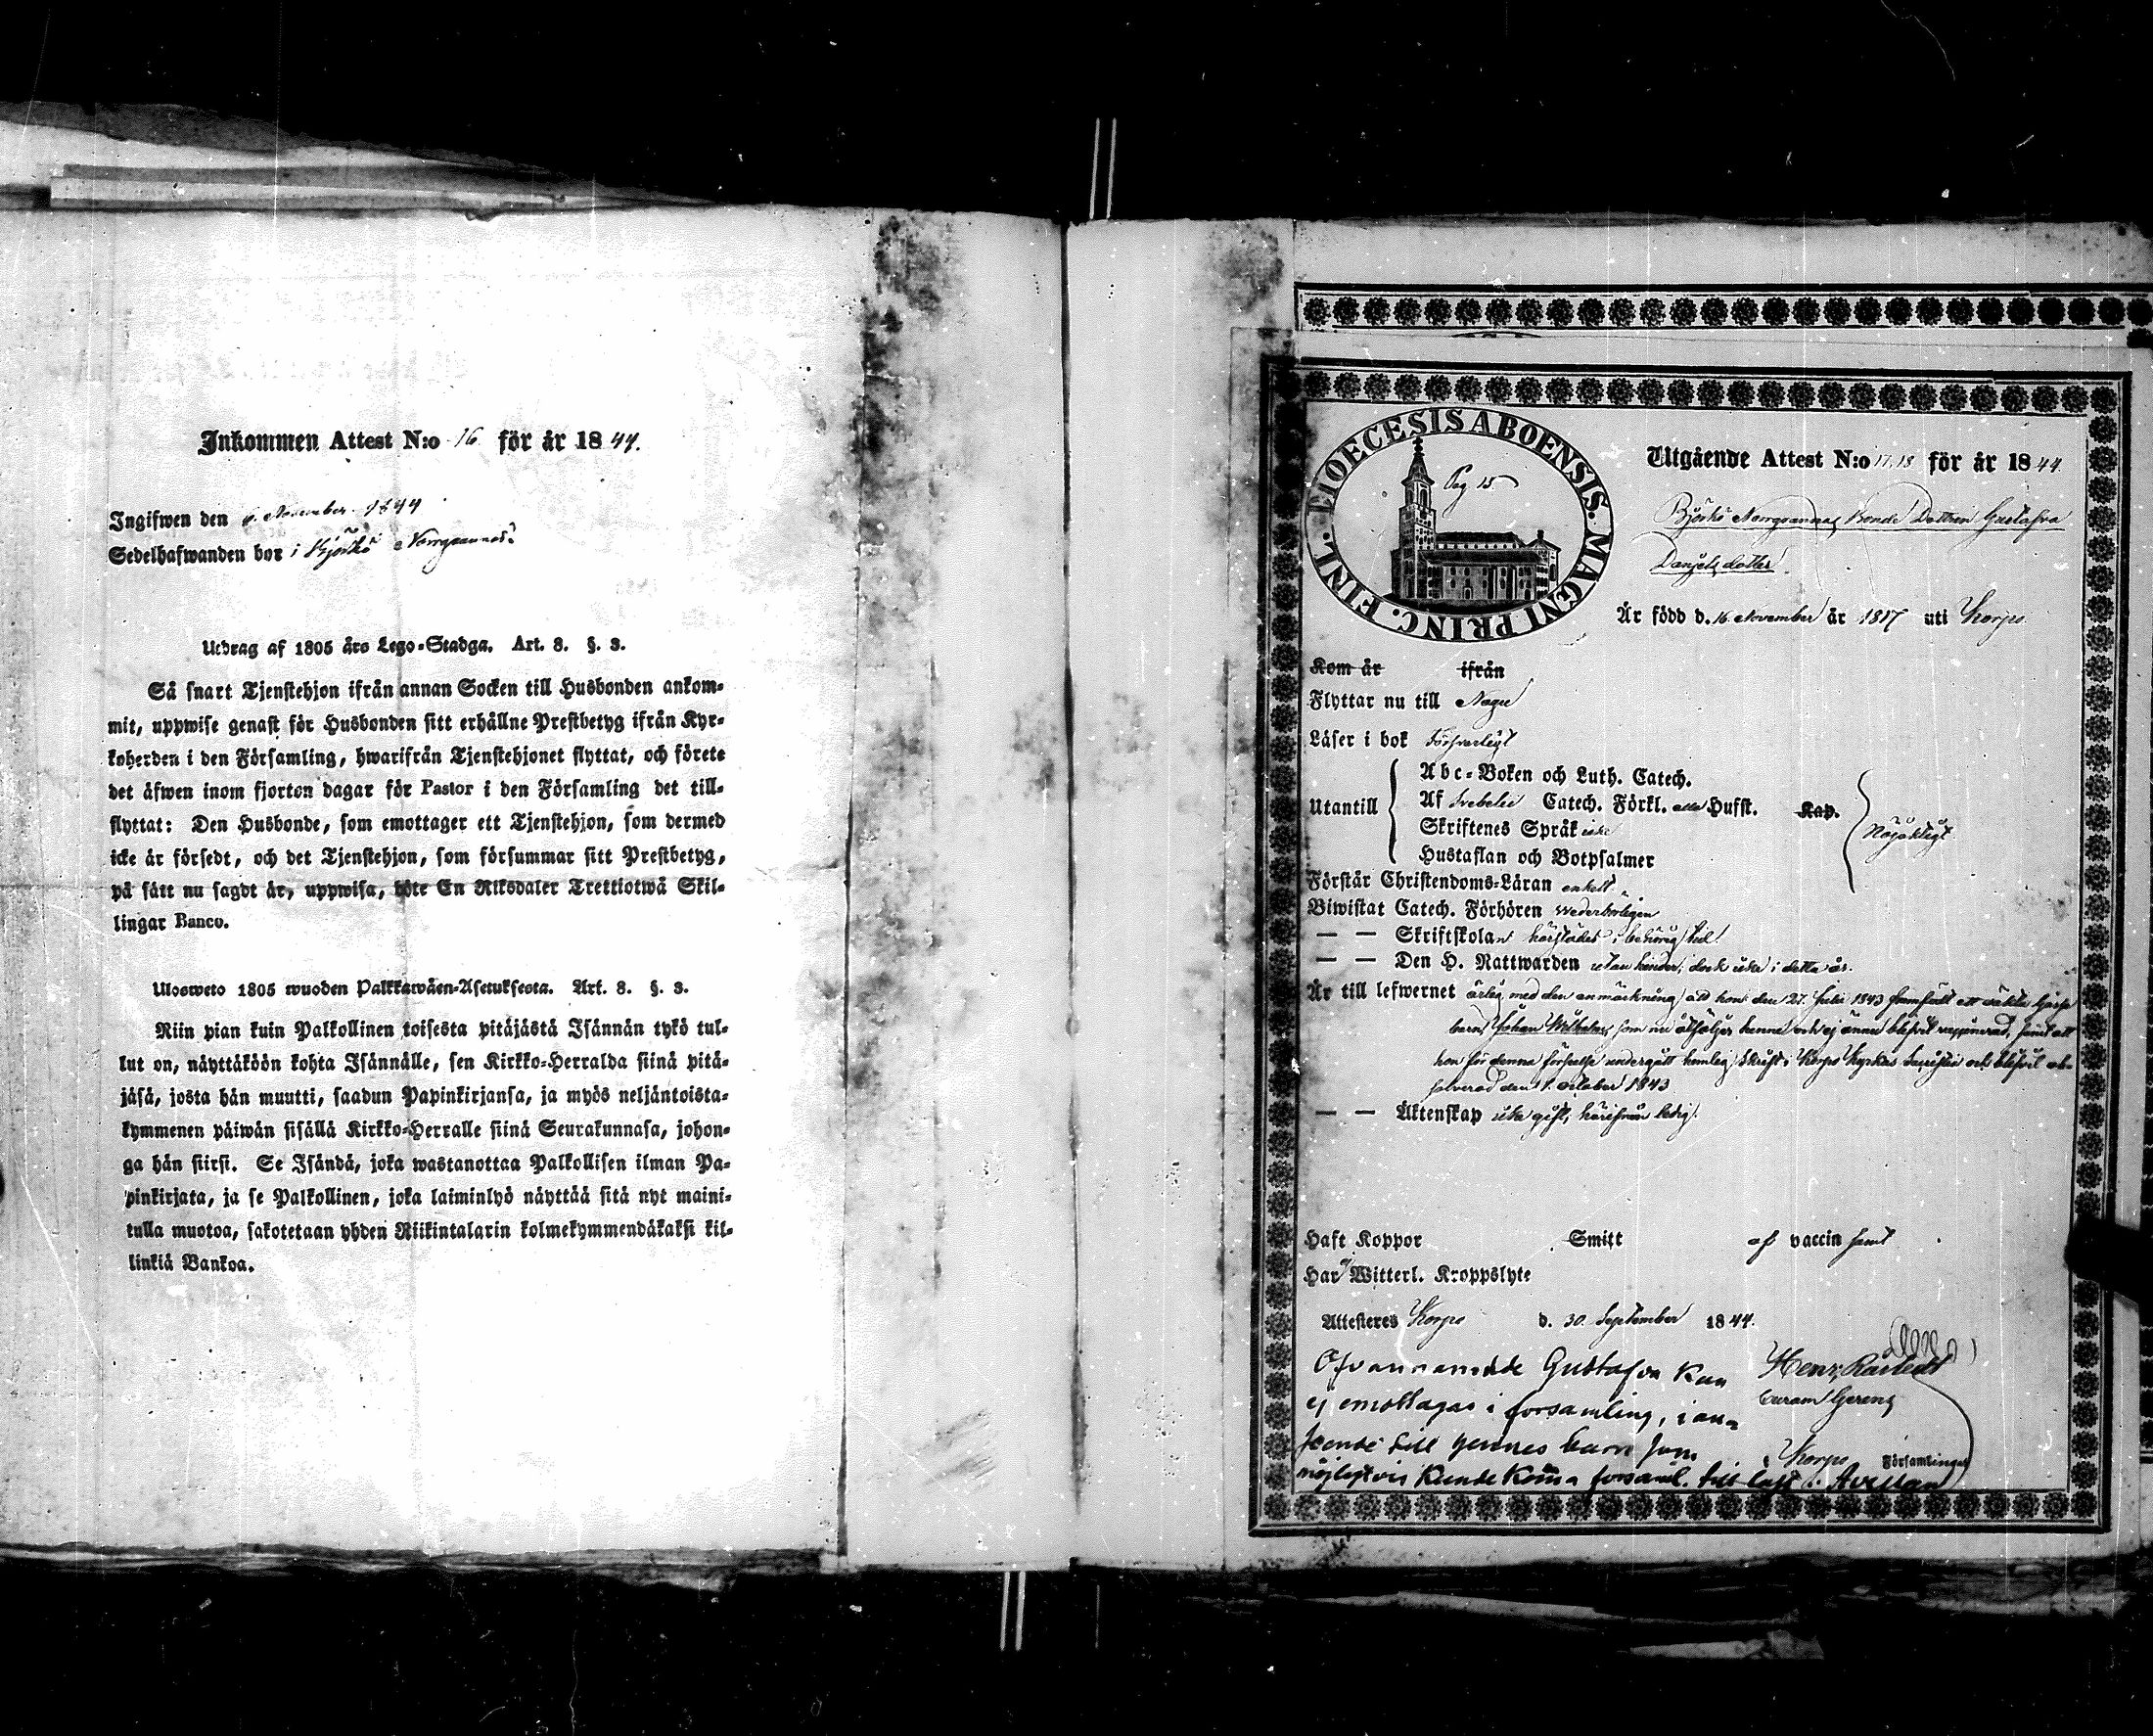 Inkommen Attest N:o 16 för år 1844.
Ingifwen den 6. November 1844
Sedelhafwanden bor i Björkö Norrgrannas
Utdrag af 1805 års Lego-Stadga. Art. 8. §. 3.
Så snart Tjenstehjon ifrån annan Socken till Husbonden ankom-
mit, uppwise genast för Husbonden sitt erhållne Prestbetyg ifrån Kyr-
koherden i den Församling, hwarifrån Tjenstehjonet flyttat, och förete
det äfwen inom fjorton dagar för Pastor i den Församling det till-
flyttat: Den Husbonde, som emottager ett Tjenstehjon, som dermed
icke är försedt, och det Tjenstehjon, som försummar sitt Prestbetyg,
på sätt nu sagdt är, uppwisa, böte En Riksdaler Trettiotwå Skil-
lingar Banco.
Ulosweto 1805 wuoden Palkkawäen-Asetuksesta. Art. 8. §. 3.
Niin pian kuin Palkollinen toisesta pitäjästä Isännän tykö tul-
lut on, näyttäköön kohta Isännälle, sen Kirkko-Herralda siinä pitä-
jäsä, josta hän muutti, saadun Papinkirjansa, ja myös neljäntoista-
kymmenen päiwän sisällä Kirkko-Herralle siinä Seurakunnasa, johon-
ga hän siirsi. Se Isändä, joka wastanottaa Palkollisen ilman Pa-
pinkirjata, ja se Palkollinen, joka laiminlyö näyttää sitä nyt maini-
tulla muotoa, sakotetaan yhden Riikintalarin kolmekymmendäkaksi kil-
linkiä Bankoa.
DIOECESIS ABOENSIS. MAGNI PRINC. FINL.
Pag 15
Utgående Attest N:o 17, 18 för år 1844.
Björkö Norrgrannas Bonde Dottren Gustafva
Danjels dotter.
Är född d. 16 November år 1817 uti Korpo.
Kom år ifrån
Flyttar nu till Nagu
Läser i bok Försvarligt
Abc-Boken och Luth. Catech.
Utantill Af Svebelii Catech. Förkl. eller Hufst. Kap. Nöjaktigt
Skriftenes Språk icke
Hustaflan och Botpsalmer
Förstår Christendoms-Läran enkelt
Biwistat Catech. Förhören wederbörligen
— — Skriftskolan härstädes i behörig tid
— — Den H. Nattwarden utan hinder, dock icke i detta år.
Är till lefwernet ärlig med den anmärkning, att hon den 27. Julii 1843 framfödt ett oäkta Gosse
barn, Johan Wilhelm, som nu åtföljer henne och ej ännu blifvit vaccinerad, samt att
hon för denna förseelse undergått hemlig Skrift i Korpo Kyrkas Sacristia och blifvit ab-
solverad den 1. October 1843
— — Äktenskap icke gift, härifrån ledig.
Haft Koppor Smitt af vaccin samt
Har ej Witterl. Kroppslyte
Attesteras Korpo d. 30 September 1844.
Ofvannämnde Gustafva kan
ej emottagas i forsamling, i an-
seende till hennes barn som
möjligtvis kunde komma forsaml. till last.
Henr.
Curam Gerens
i Korpo Församlingar